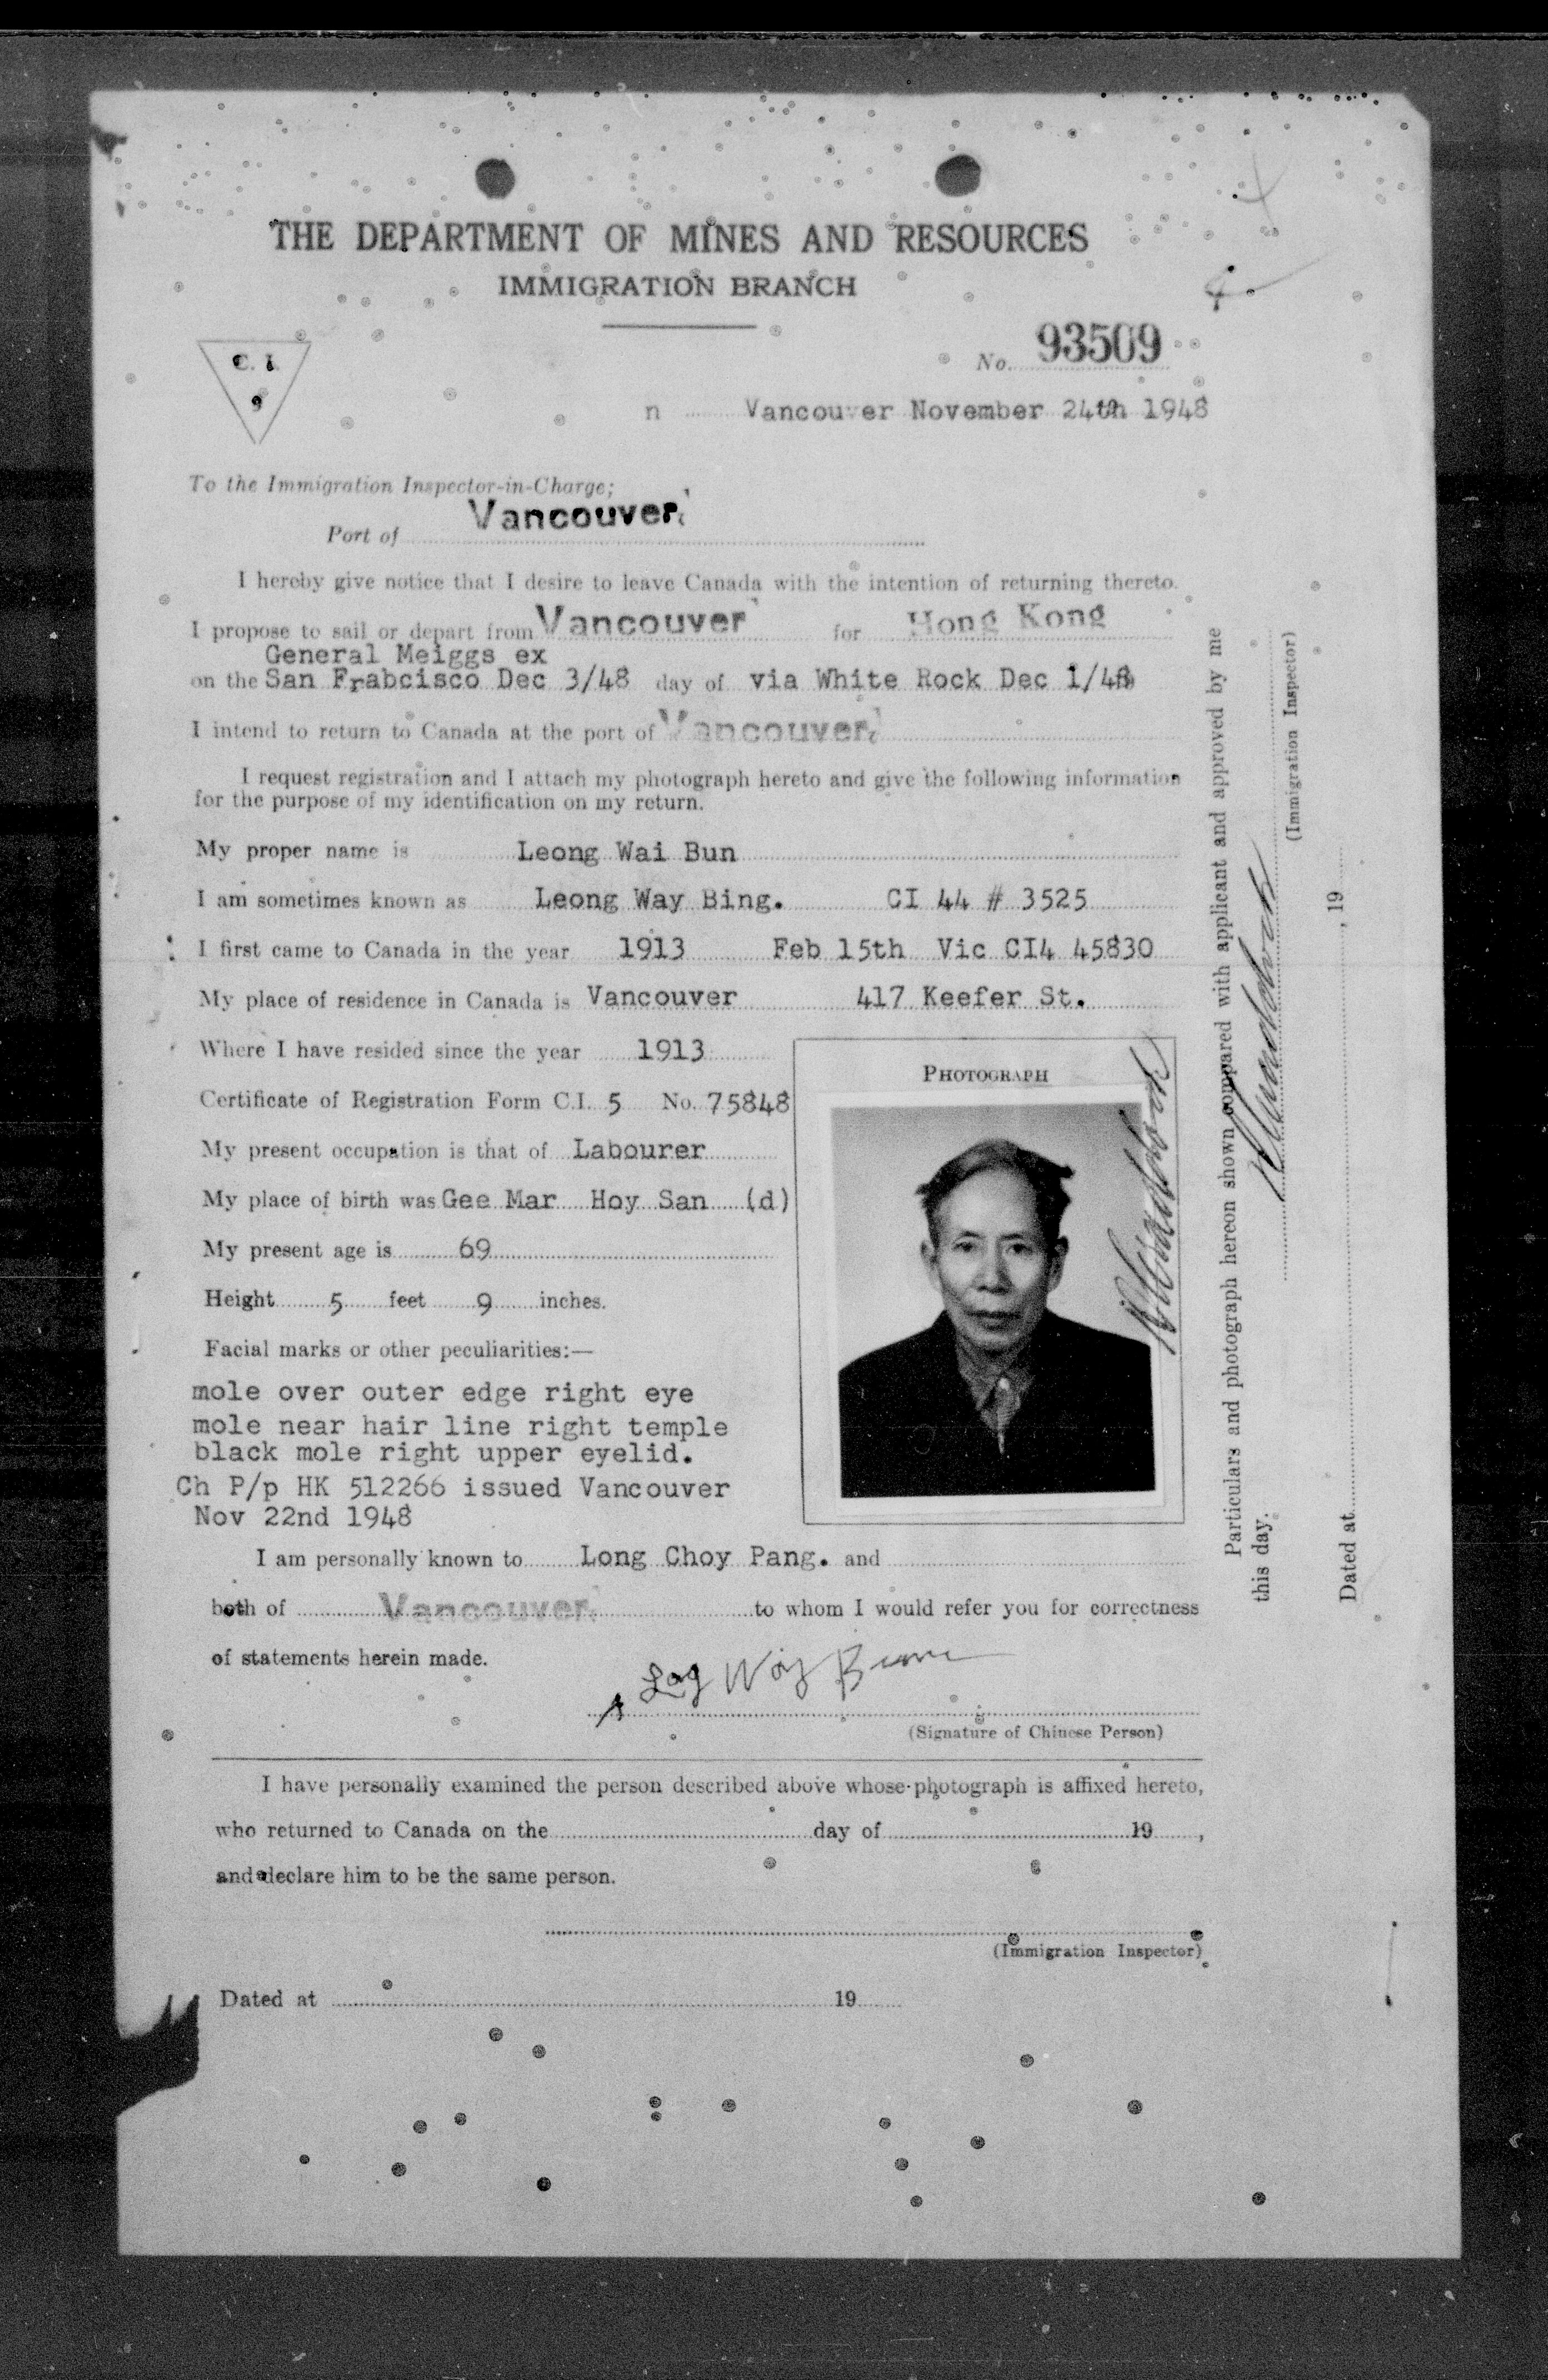 THE DEPARTMENT OF MINES AND RESOURCES
IMMIGRATION BRANCH
C. I.
9
No. 93509
n Vancouver November 24th 1948
To the Immigration Inspector-in-Charge;
Port of Vancouver
I hereby give notice that I desire to leave Canada with the intention of returning thereto.
I propose to sail or depart from Vancouver for Hong Kong
General Meiggs ex
on the San Frabcisco Dec 3/48 day of via White Rock Dec 1/48
I intend to return to Canada at the port of Vancouver
I request registration and I attach my photograph hereto and give the following information
for the purpose of my identification on my return.
My proper name is Leong Wai Bun
I am sometimes known as Leong Way Bing. CI 44 # 3525
I first came to Canada in the year 1913 Feb 15th Vic CI4 45830
My place of residence in Canada is Vancouver 417 Keefer St.
Where I have resided since the year 1913
Certificate of Registration Form C.I. 5 No. 75848
My present occupation is that of Labourer
My place of birth was Gee Mar Hoy San (d)
My present age is 69
Height 5 feet 9 inches.
Facial marks or other peculiarities:—
mole over outer edge right eye
mole near hair line right temple
black mole right upper eyelid.
Ch P/p HK 512266 issued Vancouver
Nov 22nd 1948
PHOTOGRAPH
I am personally known to Long Choy Pang. and
both of Vancouver to whom I would refer you for correctness
of statements herein made.
Log Woy Bunn
(Signature of Chinese Person)
I have personally examined the person described above whose photograph is affixed hereto,
who returned to Canada on the day of 19 ,
and declare him to be the same person.
(Immigration Inspector)
Dated at 19
Particulars and photograph hereon shown compared with applicant and approved by me
this day.
(Immigration Inspector)
Dated at , 19